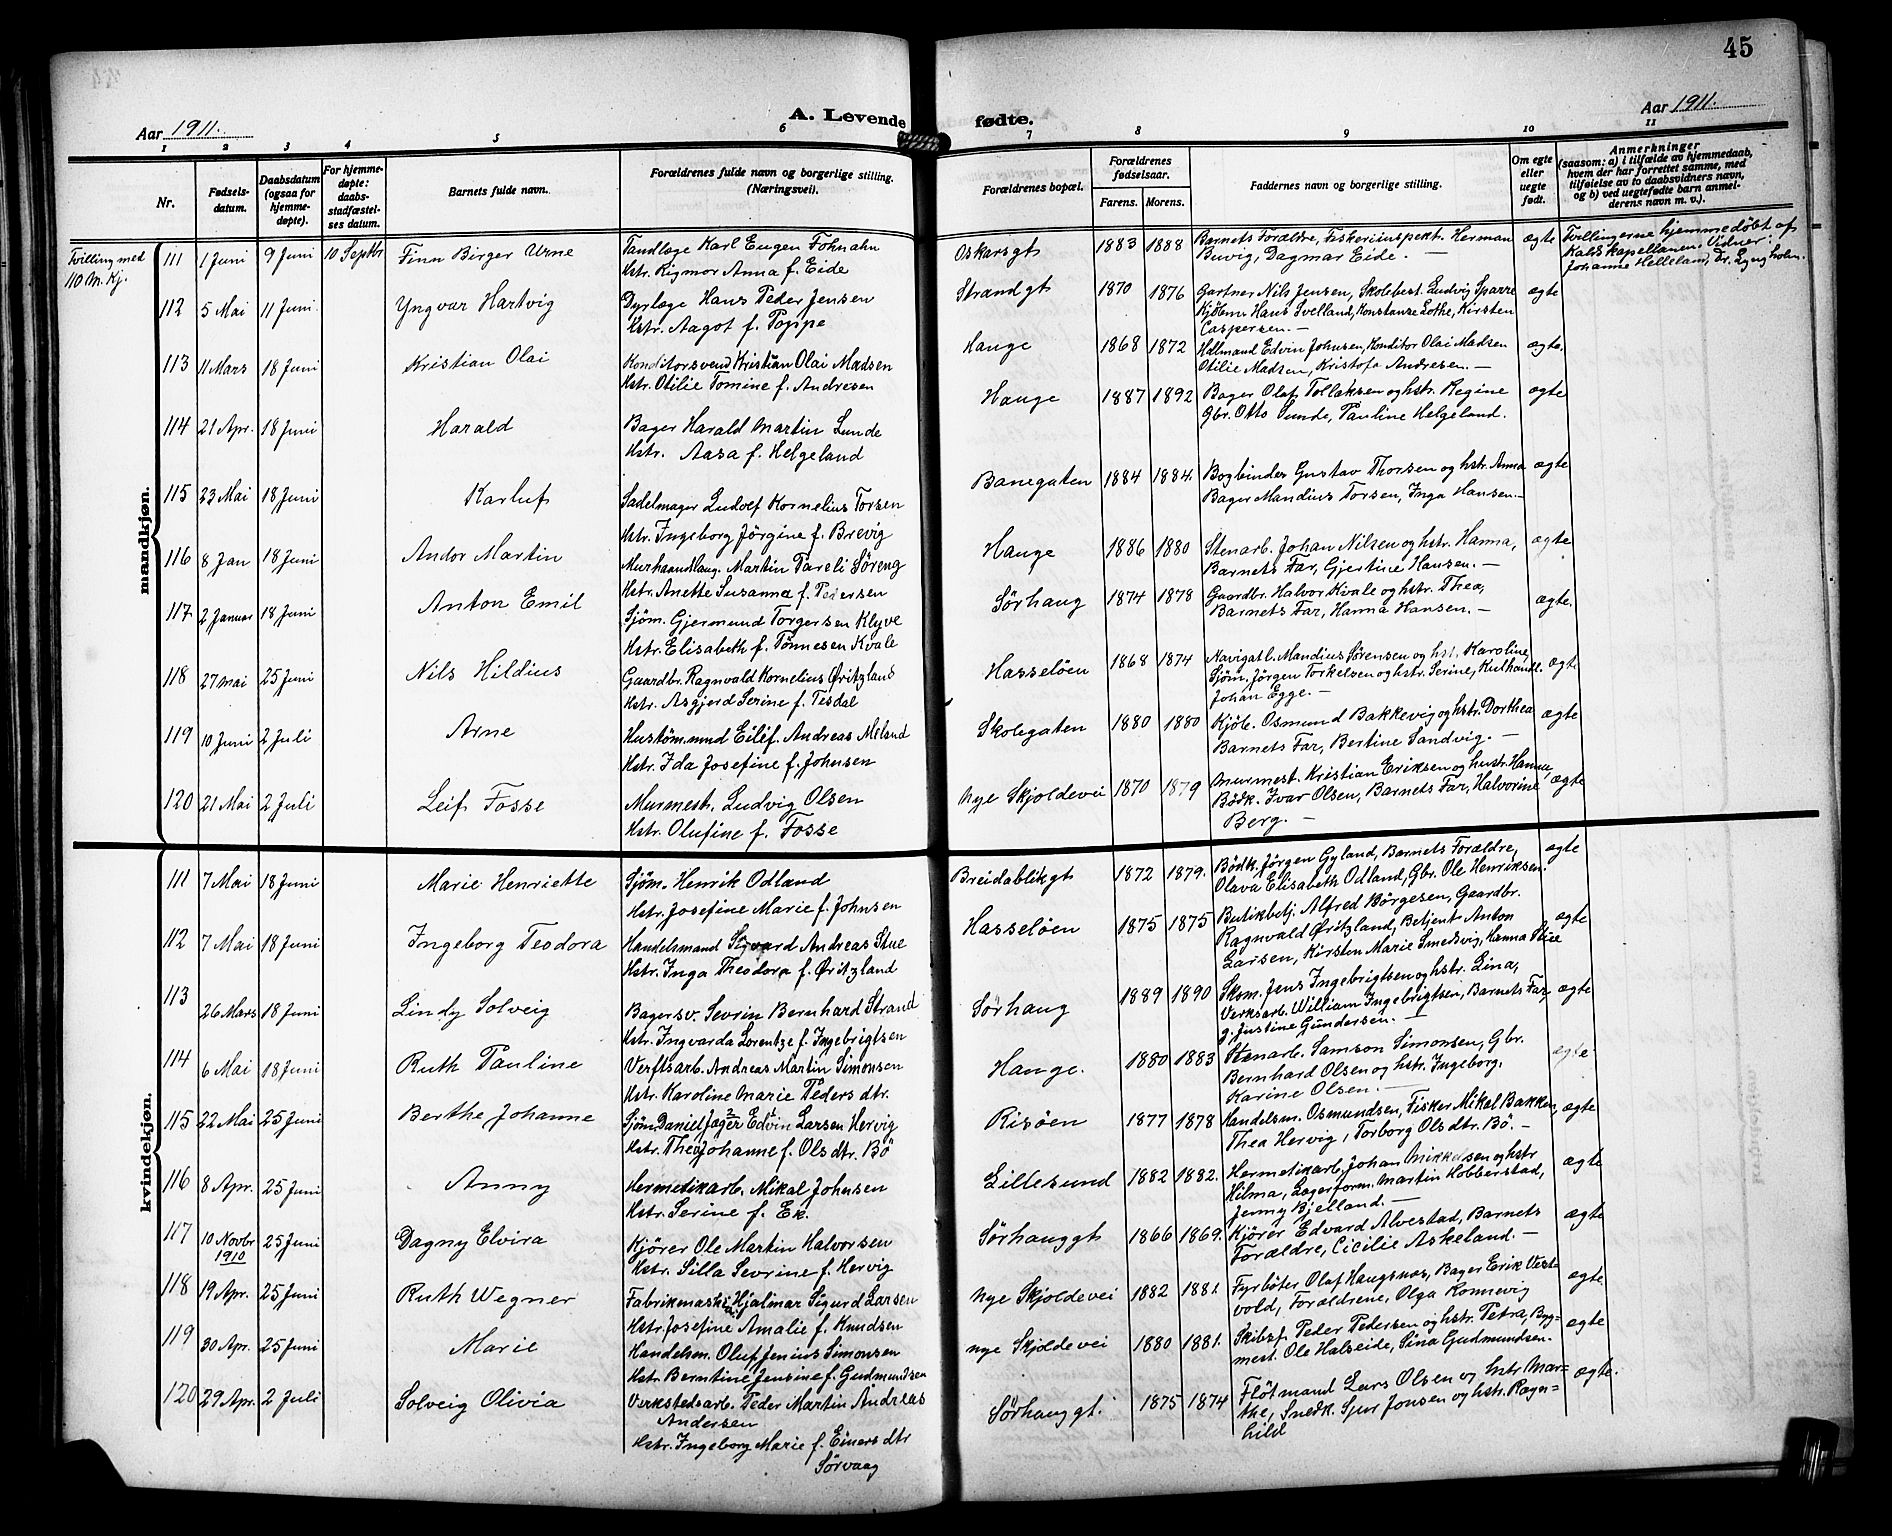 45
Aar 1911.
A. Levende fødte.
Aar 1911.
1 2 3 4 5 6 7 8 9 10 11
Nr.
Fødsels-datum.
Daabsdatum (ogsaa for hjemme-døpte).
For hjemme-døpte: daabs-stadfæstel-ses datum.
Barnets fulde navn.
Forældrenes fulde navn og borgerlige stilling. (Næringsvei).
Forældrenes bopæl.
Forældrenes fødselsaar.
Farens. Morens.
Faddernes navn og borgerlige stilling.
Om egte eller uegte født.
Anmerkninger
(saasom: a) i tilfælde av hjemmedaab, hvem der har forrettet samme, med tilføielse av to daabsvidners navn, og b) ved uegtefødte barn anmel-derens navn m. v.).
mandkjøn.
Tvilling med
110 M. Kj.
111 1 Juni 9 Juni 10 Septbr Finn Birger Urne
Tandlæge Karl Eugen Fohnahn
Hstr. Rigmor Anna f. Eide
Oskarsgt 1883 1888
Barnets Forældre, Fiskeriinspekt. Herman
Buvig, Dagmar Eide. —
ægte
Tvillingerne hjemmedöbt af
Kald's kapellanen. Vidner:
Johanne Helleland, Dr. Lyngholm.
112 5 Mai 11 Juni Yngvar Hartvig
Dyrlæge Hans Peder Jensen
Hstr. Aagot f. Poppe
Strandgt 1870 1876
Gartner Nils Jensen, Skolebest. Ludvig Sparre
Kjöbm. Hans Svelland, Konstanze Lothe, Kirsten
Caspersen. —
ægte
113 11 Mars 18 Juni Kristian Olai
Konditorsvend Kristian Olai Madsen
Hstr. Otilie Tomine f. Andresen
Hauge 1868 1872
Edvin Johnsen, Konditor Olai Madsen
Otilie Madsen, Kristofa Andresen. —
ægte.
114 21 Apr. 18 Juni Harald
Bager Harald Martin Lunde
Hstr. Aasa f. Helgeland
Hauge 1887 1892
Bager Olaf Tollaksen og hstr. Regine
Gbr. Otto Lunde, Pauline Helgeland.
ægte
115 23 Mai 18 Juni Karluf
Sadelmager Ludolf Kornelius Torsen
Hstr. Ingeborg Jörgine f. Brevig
Banegaten 1884 1884.
Bogbinder Gustav Thorsen og hstr. Anna
Bager Mandius Torsen, Inga Hansen. —
ægte
116 8 Jan 18 Juni Andor Martin
Murhaandlang. Martin Pareli Söreng
Hstr. Anette Susanna f. Pedersen
Hauge 1886 1880
Stenarb. Johan Nilsen og hstr. Hanna,
Barnets Far, Gjertine Hansen. —
ægte
117 2 Januar 18 Juni Anton Emil
Sjöm. Gjermund Torgersen Klyve
Hstr. Elisabeth f. Tönnesen Kvale
Sörhaug 1874 1878
Gaardbr. Halvor Kvale og hstr. Thea,
Barnets Far, Hanna Hansen. —
ægte.
118 27 Mai 25 Juni Nils Hildius
Gaardbr. Ragnvald Kornelius Øritzland
Hstr. Asgjerd Serine f. Tesdal
Hasselöen 1868 1874
Navigatl. Mandius Sörensen og hst. Karoline,
Sjöm. Jörgen Torkelsen og hstr. Serine, Kulhandl.
Johan Egge. —
ægte
119 10 Juni 2 Juli Arne
Hustömmund Eilef. Andreas Meland
Hstr. Ida Josefine f. Johnsen
Skolegaten 1880 1880
Kjöb. Osmund Bakkevig og hstr. Dorthea
Barnets Far, Bertine Sandvig. —
ægte
120 21 Mai 2 Juli Leif Fosse
Murmestr. Ludvig Olsen
Hstr. Olufine f. Fosse
Nye Skjoldevei 1870 1879
Murmest. Kristian Eriksen og hustr. Hanna,
Bödk. Ivar Olsen, Barnets Far, Halvorine
Berg. —
ægte
kvindekjøn.
111 7 Mai 18 Juni Marie Henriette
Sjöm. Henrik Odland
Hstr. Josefine Marie f. Johnsen
Breidablikgt 1872 1879.
Bödk. Jörgen Gyland, Barnets Forældre,
Olava Elisabeth Odland, Gbr. Ole Henriksen.
ægte
112 7 Mai 18 Juni Ingeborg Teodora
Handelsmand Sigvard Andreas Stue
Hstr. Inga Theodora f. Øritzland
Hasselöen 1875 1875
Butikbetj. Alfred Börgesen, Gaardbr.
Ragnvald Øritzland, Betjent Anton
Larsen, Kirsten Marie Smedsvig, Hanna Stue
ægte
113 26 Mars 18 Juni Lindy Solveig
Bagersv. Sevrin Bernhard Strand
Hstr. Ingvarda Lorentze f. Ingebrigtsen
Sörhaug 1889 1890
Skom. Jens Ingebrigtsen og hstr. Lina,
Verksarb. William Ingebrigtsen, Barnets Far,
g. Justine Gundersen. —
ægte
114 6 Mai 18 Juni Ruth Pauline
Verftsarb. Andreas Martin Simonsen
Hstr. Karoline Marie Peders dtr.
Hauge. 1880 1883
Stenarb. Samson Simonsen, Gbr.
Bernhard Olsen og hstr. Ingeborg,
Karine Olsen. —
ægte
115 22 Mai 25 Juni Berthe Johanne
Sjöm. Daniel Jæger Edvin Larsen Hervig
Hstr. Thea Johanne f. Ols dtr. Bö
Risöen 1877 1878
Handelsm. Osmundsen, Fisker Mikal Bakken,
Thea Hervig, Torborg Ols dtr. Bö. —
ægte
116 8 Apr. 25 Juni Anny
Hermetikarb. Mikal Johnsen
Hstr. Serine f. Ek.
Lillesund 1882 1882.
Hermetikarb. Johan Mikkelsen og hstr
Hilma, Lagerform. Martin Hobberstad,
Jenny Bjelland. —
ægte
117 10 Novbr 1910 25 Juni Dagny Elvira
Kjörer Ole Martin Halvorsen
Hstr. Silla Sevrine f. Hervig
Sörhauggt 1866 1869.
Kjörer Edvard Alvestad, Barnets
Forældre, Cicilie Askeland. —
ægte
118 19 Apr. 25 Juni Ruth Wegner
Fabrikmaski. Hjalmar Sigurd Larsen
Hstr. Josefine Amalie f. Knudsen
Nye Skjoldevei 1882 1881
Fyrböter Olaf Haugsnæs, Bager Erik Vest-
vold, Forældrene, Olga Rönnevig
ægte
119 30 Apr. 25 Juni Marie
Handelsm. Oluf Jenius Simonsen
Hstr. Berntine Jensine f. Gudmundsen
Nye Skjoldevei 1880 1881.
Skibsf. Peder Pedersen og hstr. Petra, Byg-
mest. Ole Halseide, Sina Gudmundsen.
ægte
120 29 Apr. 2 Juli Solveig Olivia
Verkstedsarb. Peder Martin Andreas
Andersen
Hstr. Ingeborg Marie f. Einers dtr
Sörvaag
Sörhauggt. 1875 1874
Flötmand Lars Olsen og hstr. Mar-
the, Snedk. Sjur Jonsen og hstr. Ragn-
hild
ægte.